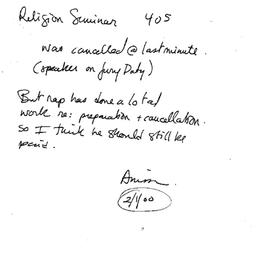 Religion Seminar 405
was cancelled @ last minute.
(speaker on Jury Duty)
But rep has done a lot of
work re: preparation + cancellation.
so I think he should still be
paid.
2/1/00